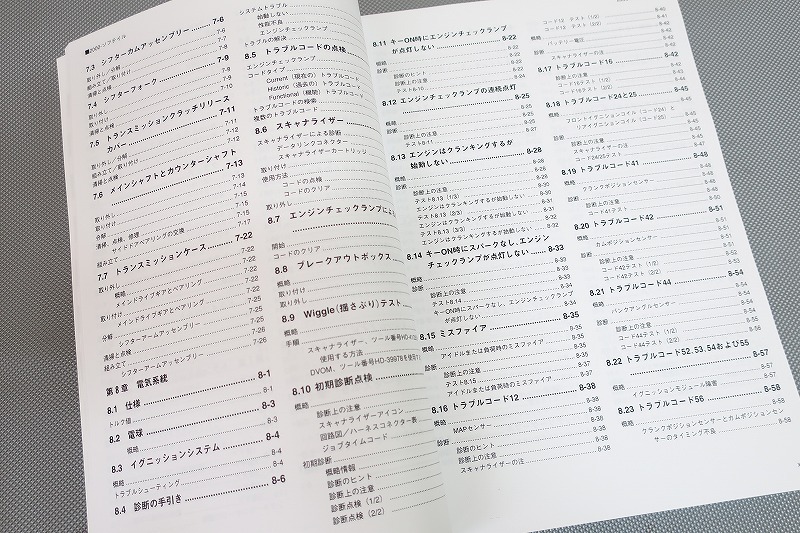 ■2000・ソフテイル
7.3 シフターカムアッセンブリー 7-6
取り外し／分解 7-6
組み立て／取り付け 7-7
清掃と点検 7-8
7.4 シフターフォーク 7-9
取り外し 7-9
取り付け 7-9
清掃と点検 7-10
7.5 トランスミッションクラッチリリースカバー 7-11
取り外し／分解 7-11
組み立て／取り付け 7-12
清掃と点検 7-12
7.6 メインシャフトとカウンターシャフト 7-13
取り外し 7-14
取り付け 7-14
分解 7-15
清掃、点検、修理 7-15
サイドドアベアリングの交換 7-15
組み立て 7-17
7.7 トランスミッションケース 7-22
取り外し 7-22
概略 7-22
メインドライブギアとベアリング 7-22
取り付け 7-25
メインドライブギアとベアリング 7-25
分解 7-25
シフターアームアッセンブリー 7-25
清掃と点検 7-26
組み立て 7-26
シフターアームアッセンブリー 7-26
第8章 電気系統
8.1 仕様 8-1
トルク値 8-1
8.2 電球 8-3
概略 8-3
8.3 イグニッションシステム 8-4
概略 8-4
トラブルシューティング 8-4
8.4 診断の手引き 8-6
システムトラブル
始動しない
性能不良
エンジンチェックランプ
トラブルの解決
8.5 トラブルコードの点検
エンジンチェックランプ
コードタイプ
Current（現在の）トラブルコード
Historic（過去の）トラブルコード
Functional（機能）トラブルコード
トラブルコードの検索
複数のトラブルコード
8.6 スキャナライザー
スキャナライザーによる診断
データリンクコネクター
スキャナライザーカートリッジ
取り付け
使用方法
コードの点検
コードのクリア
取り外し
8.7 エンジンチェックランプによる
開始
コードのクリア
8.8 ブレークアウトボックス
概略
取り付け
取り外し
8.9 Wiggle（揺さぶり）テスト
概略
手順
スキャナライザー、ツール番号HD-4132
使用する方法
DVOM、ツール番号HD-39978を使用す
8.10 初期診断点検
概略
診断上の注意
スキャナライザーアイコン
回路図／ハーネスコネクター表
ジョブタイムコード
初期診断
概略情報
診断のヒント
診断上の注意
診断点検（1/2）
診断点検（2/2）
8.11 キーON時にエンジンチェックランプが点灯しない 8-22
概略 8-22
診断 8-22
診断のヒント 8-22
診断上の注意 8-23
テスト8.10 8-24
8.12 エンジンチェックランプの連続点灯 8-25
概略 8-25
診断 8-25
診断上の注意 8-25
テスト8.11 8-27
8.13 エンジンはクランキングするが始動しない 8-28
概略 8-28
診断 8-28
診断上の注意 8-28
テスト8.13（1/3） 8-30
エンジンはクランキングするが始動しない 8-30
テスト8.13（2/3） 8-31
エンジンはクランキングするが始動しない 8-31
テスト8.13（3/3） 8-32
エンジンはクランキングするが始動しない 8-32
8.14 キーON時にスパークなし、エンジンチェックランプが点灯しない 8-33
概略 8-33
診断 8-33
診断上の注意 8-33
テスト8.14 8-34
キーON時にスパークなし、エンジンチェックランプが点灯しない 8-34
8.15 ミスファイア 8-35
概略 8-35
アイドルまたは負荷時のミスファイア 8-35
診断 8-35
診断上の注意 8-35
テスト8.15 8-37
アイドルまたは負荷時のミスファイア 8-37
8.16 トラブルコード12 8-38
概略 8-38
MAPセンサー 8-38
診断 8-38
診断のヒント 8-38
診断上の注意 8-38
スキャナライザーの注 8-38
コード12 テスト（1/2） 8-40
コード12 テスト（2/2） 8-41
概略
バッテリー電圧
診断
スキャナライザーの注
8.17 トラブルコード16 8-42
診断上の注意
コード16テスト（1/2）
コード16テスト（2/2）
8.18 トラブルコード24と25 8-45
概略 8-45
フロントイグニッションコイル（コード24） 8-45
リアイグニッションコイル（コード25） 8-45
診断 8-45
診断上の注意 8-45
スキャナライザーの注 8-45
コード24/25テスト 8-47
8.19 トラブルコード41 8-48
概略 8-48
クランクポジションセンサー 8-48
診断 8-48
診断上の注意 8-48
コード41テスト 8-50
8.20 トラブルコード42 8-51
概略 8-51
カムポジションセンサー 8-51
診断 8-51
診断上の注意 8-51
コード42テスト（1/2） 8-52
コード42テスト（2/2） 8-53
8.21 トラブルコード44 8-54
概略 8-54
バンクアングルセンサー 8-54
診断 8-54
診断上の注意 8-54
コード44テスト（1/2） 8-55
コード44テスト（2/2） 8-56
8.22 トラブルコード52、53、54および55 8-57
概略 8-57
イグニションモジュール障害 8-57
8.23 トラブルコード56 8-58
概略 8-58
クランクポジションセンサーとカムポジションセンサーのタイミング不良 8-58